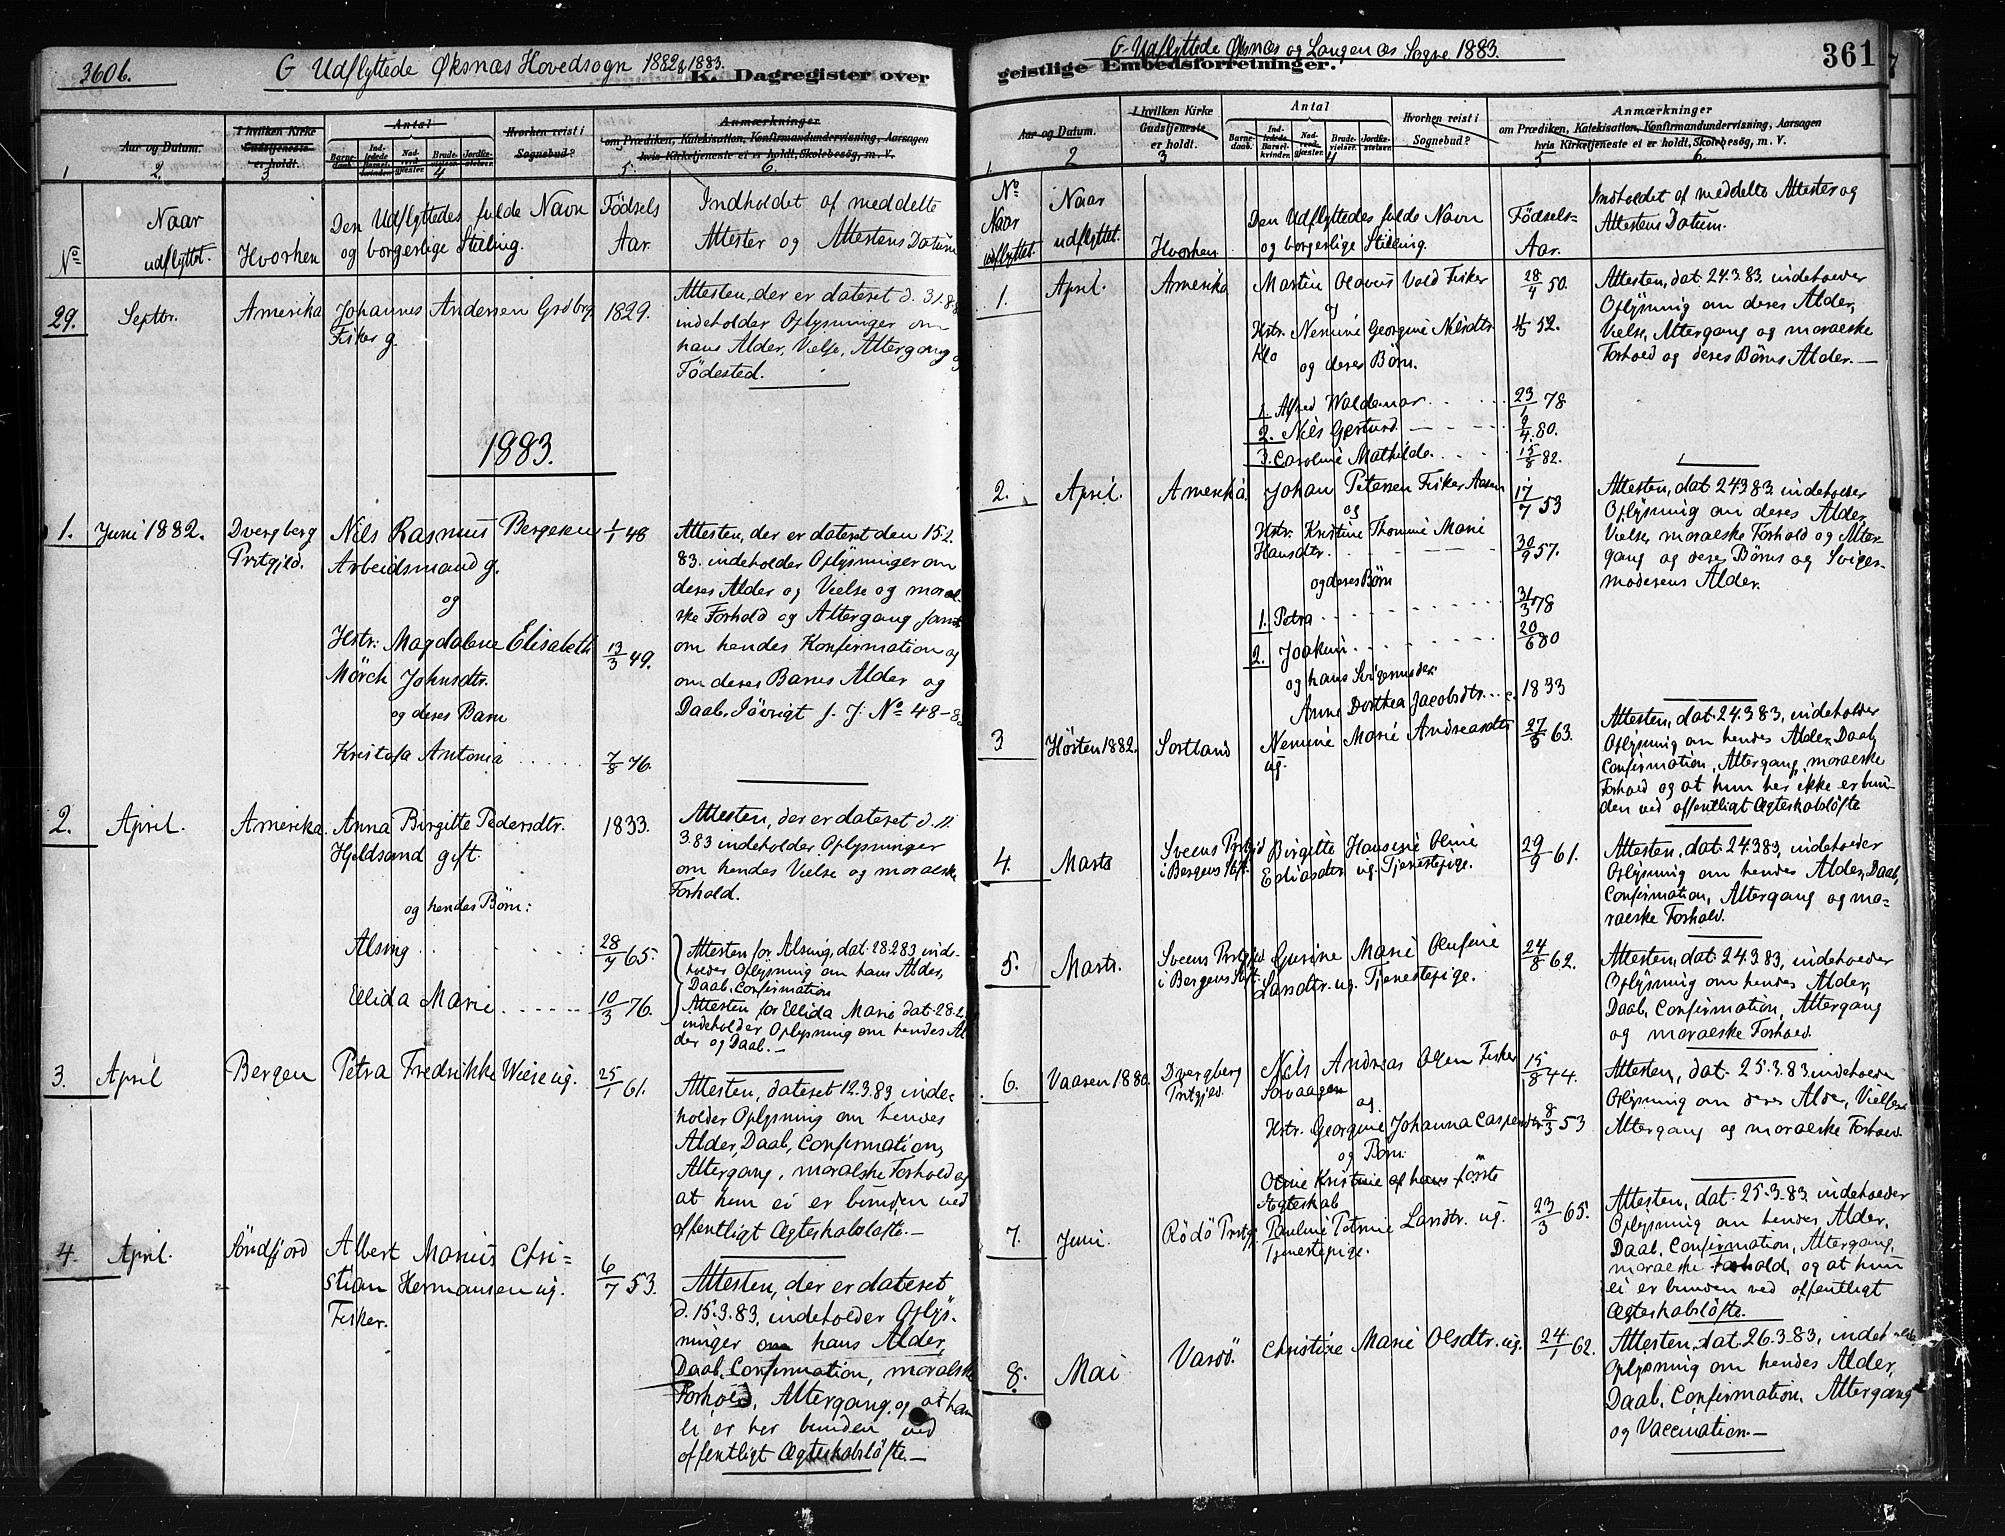 360b.
G Udflyttede Øksnæs Hovedsogn 1882 & 1883.
K. Dagregister over
Aar og Datum.
I hvilken Kirke Gudstjeneste er holdt.
Antal
Barnedaab.
Indledede Barselkvinder.
Nadverdgjester.
Brudevielser.
Jordfæstelser.
Hvorhen reist i Sognebud?
Anmærkninger
om Prædiken, Katekisation, Konfirmandundervisning, Aarsagen
hvis Kirketjeneste ei er holdt, Skolebesøg, m. V.
1 2. 3. 4 5. 6.
No
Naar udflyttet.
Hvorhen
Den Udflyttedes fulde Navn
og borgerlige Stilling.
Fødsels Aar.
Indholdet af meddelte
Attester og Attestens Datum
29. Septbr. Amerika Johannes Andersen 1829.
Fisker g.
Attesten, der er dateret d. 31.8.8
indeholder Oplysninger om
hans Alder, Vielse, Altergang og
Fødested.
1883.
1. Juni 1882. Dvergberg Prstgjld.
Nils Rasmus Bergesen 1/1 48
Arbeidsmand g.
og
Hstr: Magdalene Elisabeth 13/3 49.
Mörch Johnsdtr.
og deres Barn
Kristofa Antonia 7/8 76.
Attesten, der er dateret den 15.2
83. indeholder Oplysninger om
deres Alder og Vielse og moral-
ske Forhold og Altergang samt
om hendes Konfirmation og
om deres Barns Alder og
Daab. Iøvrigt s. J. No 48-8
2. April. Amerika. Anna Birgitte Pedersdtr. 1833.
Hjeldsand gift
og hendes Børn:
Alsing 28/7 65.
Ellida Marie 10/3 76.
Attesten, der er dateret d. 11.
3.83 indeholder Oplysninger
om hendes Vielse og moralske
Forhold.
Attesten for Alsing, dat. 28.2.83 inde-
holder Oplysning om hans Alder,
Daab, Confirmation
Attesten for Ellida Marie dat. 28.2.
indeholder Oplysning om hendes Al
der og Daab.—
3. April Bergen Petra Fredrikke Wiese ug. 25/1 61.
Attesten, dateret 12.3.83 inde-
holder Oplysning om hendes
Alder, Daab, Confirmation,
Altergang, moralske Forhold og
at hun ei er bunden ved
offentligt Ægteskabsløfte.—
4. April. Søndfjord Albert Marius Chri-
stian Hermansen ug. 6/7 53.
Fisker.
Attesten, der er dateret
d. 15.3.83, indeholder Oplys-
ninger om hans Alder,
Daab, Confirmation, moralske
Forhold, Altergang, og at han
ei er her bunden ved
offentligt Ægteskabsløfte.—
G. Udflyttede Øksnæs og Langenæs Sogne 1883.
geistlige Embedsforretninger.
361
Aar og Datum.
I hvilken Kirke Gudstjeneste er holdt.
Antal
Barnedaab.
Indledede Barselkvinder.
Nadverdgjester.
Brudevielser.
Jordfæstelser.
Hvorhen reist i Sognebud?
Anmærkninger
om Prædiken, Katekisation, Konfirmandundervisning, Aarsagen
hvis Kirketjeneste ei er holdt, Skolebesøg, m. V.
1. 2 3 4 5 6.
No
Naar udflyttet.
Naar udflyttet.
Hvorhen
Den Udflyttedes fulde Navn
og borgerlige Stilling.
Fødsels- Aar.
Indholdet af meddelte Attester og
Attestens Datum.
1. April. Amerika Martin Olavus Vold Fisker 28/4 50.
og
Hstr. Nemine Georgine Nilsdtr. 52.
Klo
og deres Børn.
1. Alfred Waldemar 23/1 78
2. Nils Gerhard 2/4 80.
3. Caroline Mathilde 15/8 82.
Attesten, dat. 24.3.83. indeholder
Oplysning om deres Alder,
Vielse, Altergang og moralske
Forhold og deres Børns Alder.—
2. April. Amerika. Johan Petersen Fisker Aasen 17/7 53
og
Hstr. Kristine Thomine Marie
Hansdtr. 30/9 57.
og deres Børn
1. Petra 31/3 78
2. Joakim 20/6 80
og hans Svigermoder.
Anne Dorthea Jacobsdtr. c. 1833
Attesten, dat. 24.3.83. indeholder
Oplysning om deres Alder,
Vielse, moralske Forhold og Alter-
gang og deres Børns og Sviger-
moderens Alder.
3 Høsten 1882. Sortland Nemine Marie Andreasdtr. 27/5 63.
ug.
Attesten, dat. 24.3.83, indeholder
Oplysning om hendes Alder, Daab,
Confirmation, Altergang, moralske
Forhold og at hun her ikke er bun-
den ved offentligt Ægteskabsløfte
4. Marts Sveens Prstgjld
i Bergens Stift.
Birgitte Hansine Oline 29/9 61.
Eliasdtr. ug. Tjenestepige.
Attesten, dat. 24.3.83, indeholder
Oplysning om hendes Alder, Daab,
Confirmation, Altergang og mo-
ralske Forhold.
5. Marts. Sveens Prstgjld
i Bergens Stift.
Gurine Marie Olufine 24/8 62.
Larsdtr. ug. Tjenestepige.
Attesten, dat. 24.3.83, indeholder
Oplysning om hendes Alder,
Daab, Confirmation, Altergang
og moralske Forhold.
6. Vaaren 1880. Dvergberg
Prstgjld.
Nils Andreas Olsen Fisker 15/8 44.
Sorvaagen
og
Hstr. Georgine Johanna Caspersdtr 8/3 53
og Barn.
Oline Kristine af hans første
Ægteskab
Attesten, dat. 25.3.83 indeholder
Oplysning om deres Alder, Vielse
Altergang og moralske Forhold.
7. Juni. Rödö Prstgj. Pauline Petrine Larsdtr. ug. 23/3 65.
Tjenestepige.
Attesten, dat. 25.3.83, indeholder
Oplysning om hendes Alder,
Daab, Confirmation, Altergang,
moralske Forhold, og at hun
ei er bunden ved offentligt
Ægteskabsløfte.
8. Mai Vardö. Christine Marie Olsdtr. ug. 24/1 62.
Attesten, dat. 26.3.83, indeholder
Oplysning om hendes Alder,
Daab, Confirmation, Altergang
og Vaccination.—